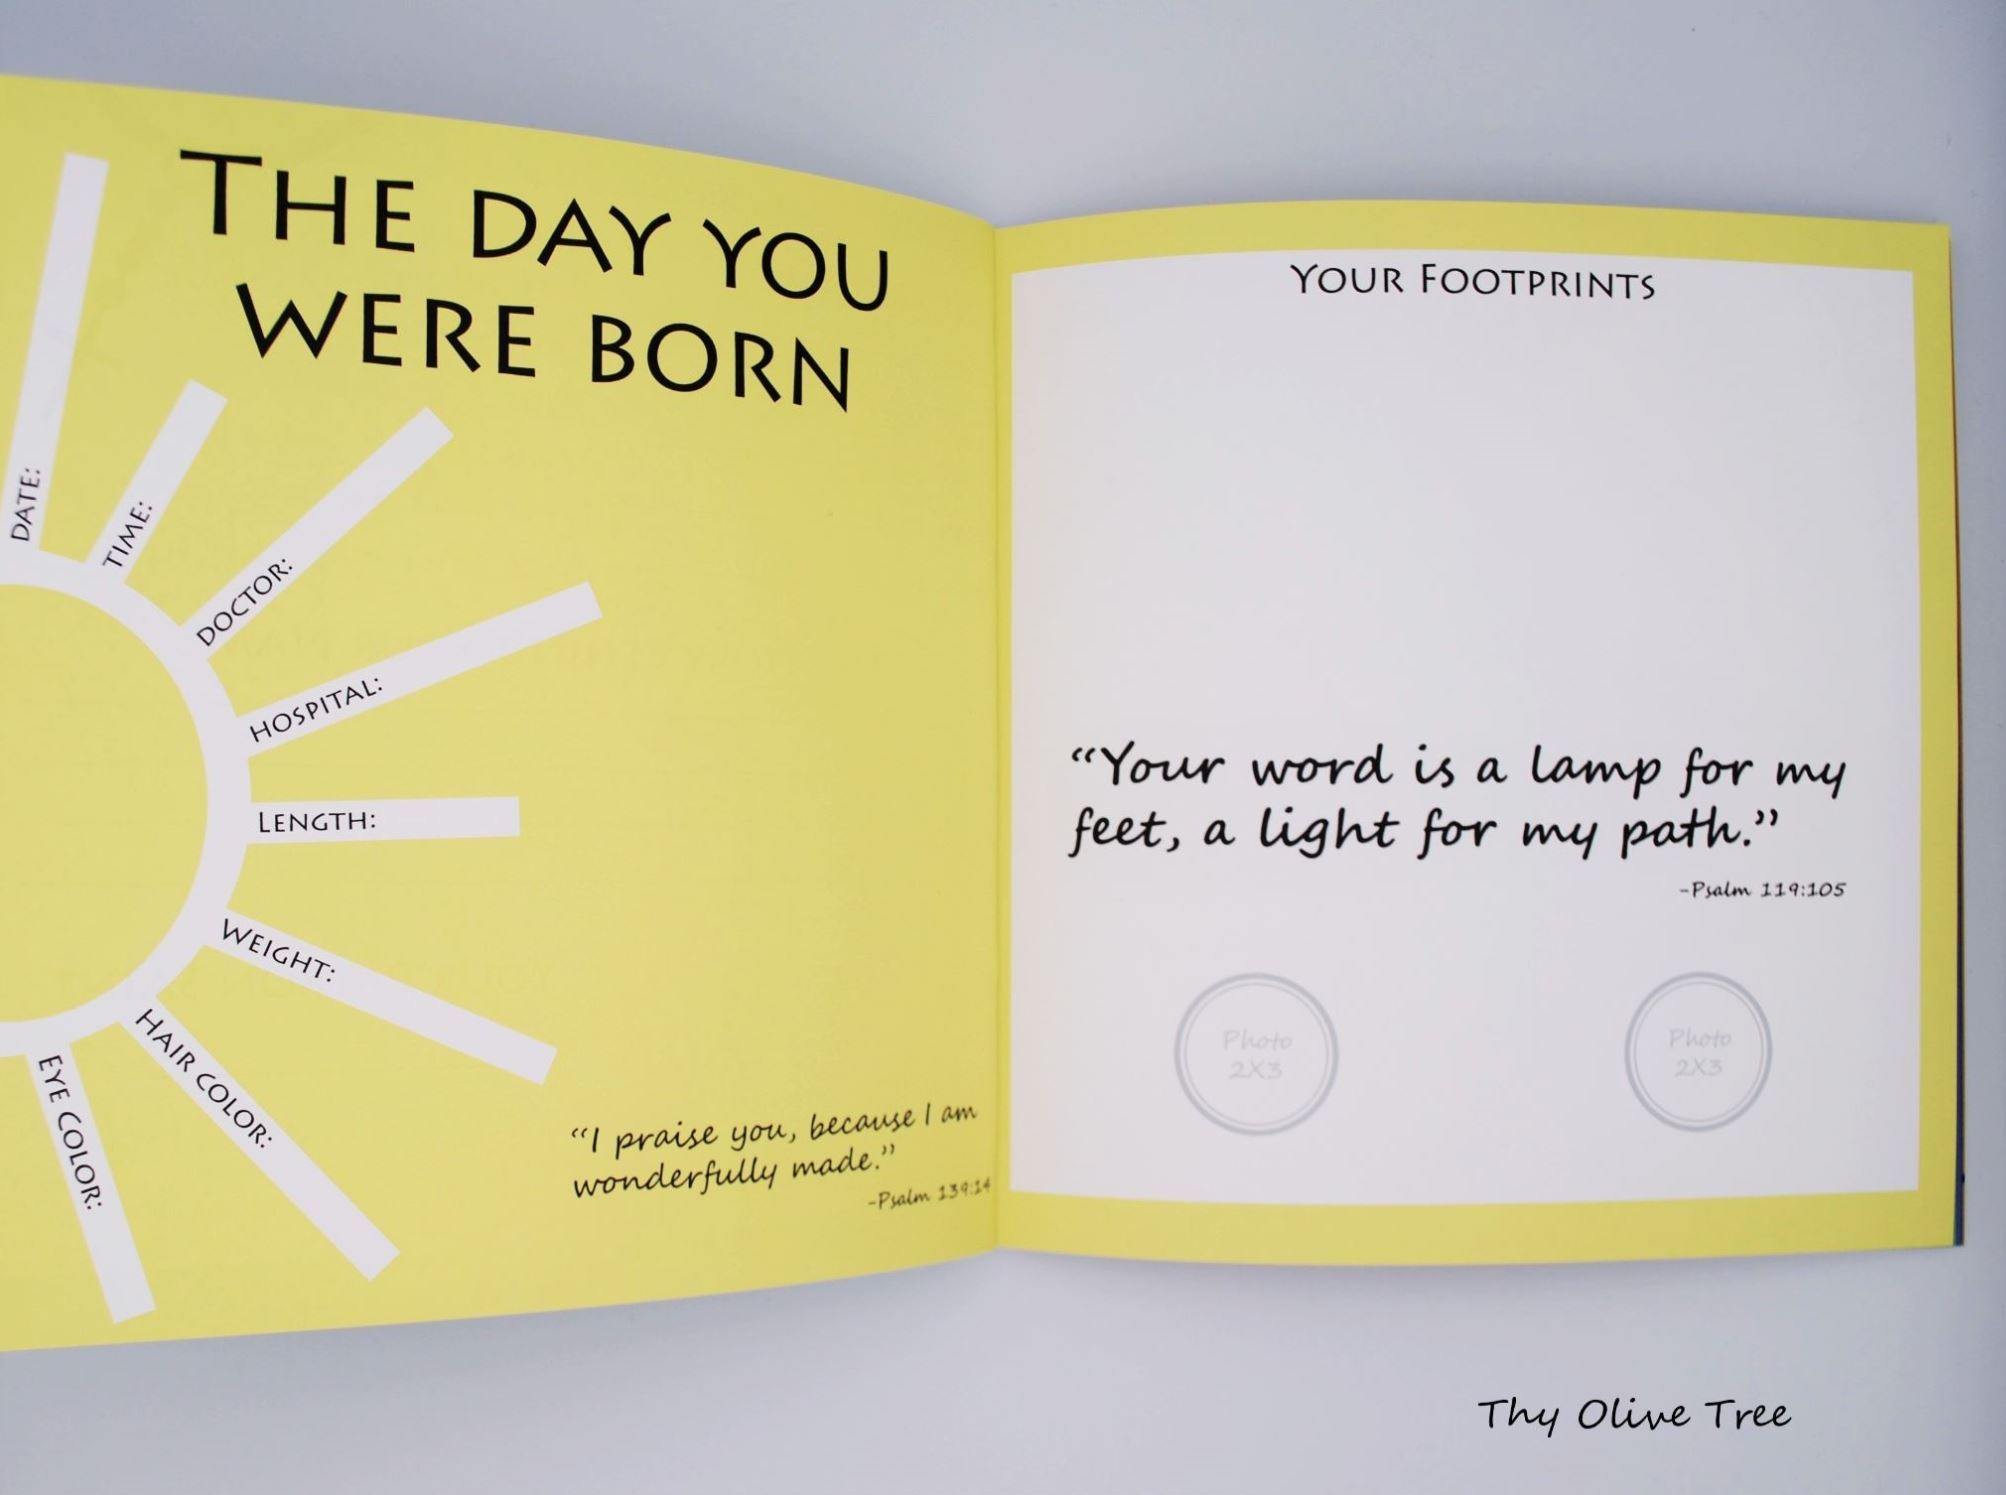 THE DAY YOU
WERE BORN
DATE:
TIME:
DOCTOR:
HOSPITAL:
LENGTH:
WEIGHT:
HAIR COLOR:
EYE COLOR:
“I praise you, because I am
wonderfully made.”
-Psalm 139:14
YOUR FOOTPRINTS
“Your word is a lamp for my
feet, a light for my path.”
-Psalm 119:105
Photo
2X3
Photo
2X3
Thy Olive Tree